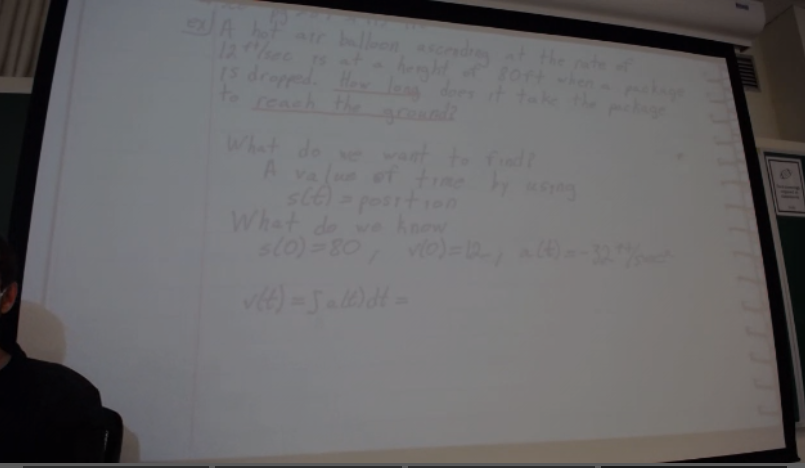 ex) A hot air balloon ascending at the rate of
12 ft/sec is at a height of 80ft when a package
is dropped. How long does it take the package
to reach the ground?
What do we want to find?
A value of time by using
s(t) = position
What do we know
s(0)=80, v(0)=12, a(t)=-32 ft/sec²
v(t) = ∫a(t)dt =